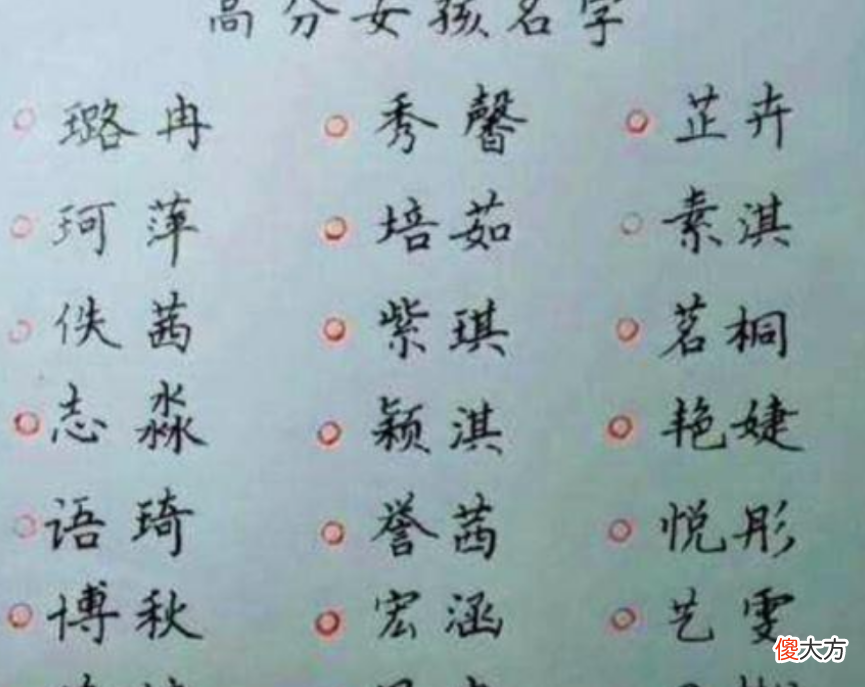 高分女孩名字
璐冉 秀馨 芷卉
珂萍 培茹 素淇
佚茜 紫琪 茗桐
志淼 颖淇 艳婕
语琦 誉茜 悦彤
博秋 宏涵 艺雯
傻大方